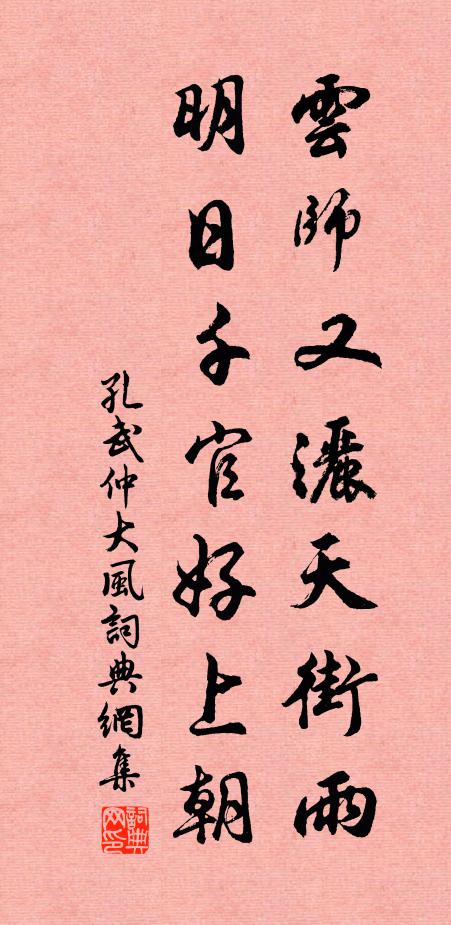 雲師又灑天街雨
明日千官好上朝
孔武仲大風詞典網集
詞典網印